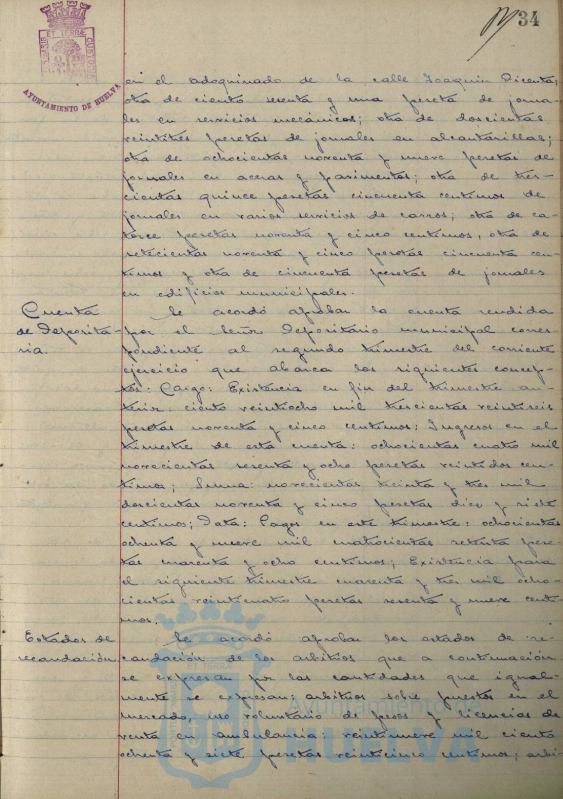 34
AYUNTAMIENTO DE HUELVA
en el adoquinado de la calle Joaquin Dicenta;
otra de ciento sesenta y una peseta de jorna-
les en servicios mecánicos; otra de doscientas
veintitres pesetas de jornales en alcantarillas;
otra de ochocientas noventa y nueve pesetas de
jornales en aceras y pavimentos; otra de tres-
cientas quince pesetas cincuenta centimos de
jornales en varios servicios de carros; otra de ca-
torce pesetas noventa y cinco centimos, otra de
setecientas noventa y cinco pesetas cincuenta cen-
timos y otra de cincuenta pesetas de jornales
en edificios municipales.
Cuenta
de Deposita-
ria.
Se acordó aprobar la cuenta rendida
por el Señor Depositario municipal corres-
pondiente al segundo trimestre del corriente
ejercicio que abarca los siguientes concep-
tos: Cargo: Existencia en fin del trimestre an-
terior: ciento veintiocho mil trescientas veintiseis
pesetas noventa y cinco centimos; Ingresos en el
trimestre de esta cuenta: ochocientas cuatro mil
novecientas sesenta y ocho pesetas veintidos cen-
timos; Suma: novecientas treinta y tres mil
doscientas noventa y cinco pesetas diez y siete
centimos; Data: Pagos en este trimestre: ochocientas
ochenta y nueve mil cuatrocientas setenta pese-
tas cuarenta y ocho centimos; Existencia para
el siguiente trimestre cuarenta y tres mil ocho-
cientas veinticuatro pesetas sesenta y nueve centi-
mos.
Estados de
recaudación
Se acordó aprobar los estados de re-
caudación de los arbitrios que a continuación
se expresan por las cantidades que igual-
mente se expresan: arbitrios sobre puestos en el
mercado, uso voluntario de pesos y licencias de
venta en ambulancia: veintinueve mil ciento
ochenta y siete pesetas veinticinco centimos; arbi-
Ayuntamiento de
HUELVA